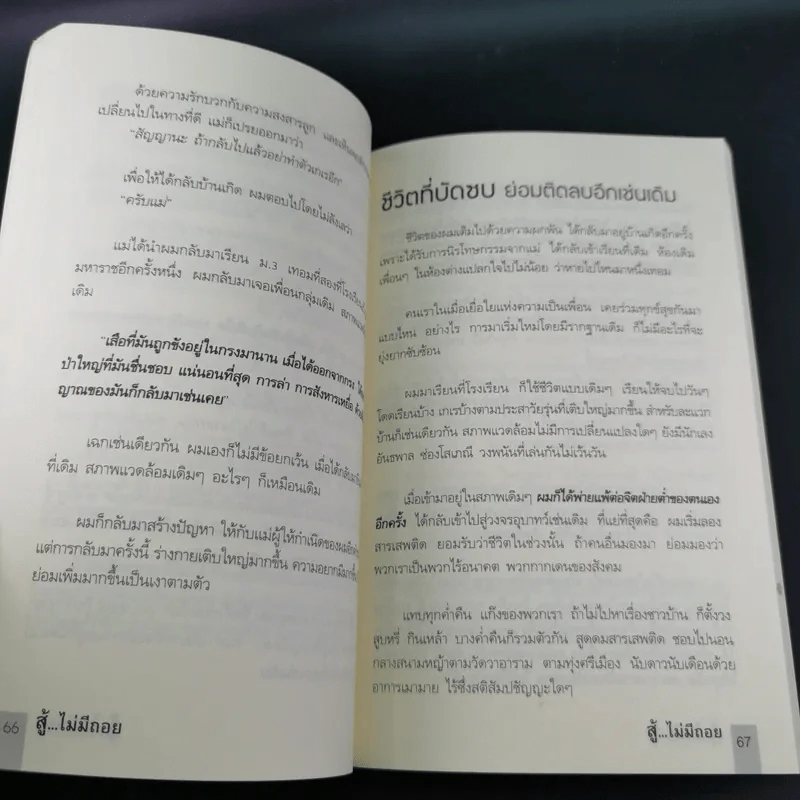 ด้วยความรักบวกกับความสงสารลูก และเห็นผม
เปลี่ยนไปในทางที่ดี แม่ก็เปรยออกมาว่า
“สัญญานะ ถ้ากลับไปแล้วอย่าทำตัวเกเรอีก”
เพื่อให้ได้กลับบ้านเกิด ผมตอบไปโดยไม่ลังเลว่า
“ครับแม่”
แม่ได้นำผมกลับมาเรียน ม.3 เทอมที่สองที่โรงเรียน
มหาราชอีกครั้งหนึ่ง ผมกลับมาเจอเพื่อนกลุ่มเดิม สภาพแวด
เดิม
“เสือที่มันถูกขังอยู่ในกรงมานาน เมื่อได้ออกจากกรง
ป่าใหญ่ที่มันชื่นชอบ แน่นอนที่สุด การล่า การสังหารเหยื่อ
ญาณของมันก็กลับมาเช่นเคย”
เฉกเช่นเดียวกัน ผมเองก็ไม่มีข้อยกเว้น เมื่อได้กลับมา
ที่เดิม สภาพแวดล้อมเดิมๆ อะไรๆ ก็เหมือนเดิม
ผมก็กลับมาสร้างปัญหา ให้กับแม่ผู้ให้กำเนิดของผมอีก
แต่การกลับมาครั้งนี้ ร่างกายเติบใหญ่มากขึ้น ความอยากมีมาก
ย่อมเพิ่มมากขึ้นเป็นเงาตามตัว
66 สู้...ไม่มีถอย
ชีวิตที่บัดซบ ย่อมติดลบอีกเช่นเดิม
ชีวิตของผมเติมไปด้วยความผกผัน ได้กลับมาอยู่บ้านเกิดอีกครั้ง
เพราะได้รับการนิรโทษกรรมจากแม่ ได้กลับเข้าเรียนที่เดิม ห้องเดิม
เพื่อนๆ ในห้องต่างแปลกใจไปไม่น้อย ว่าหายไปไหนมาหนึ่งเทอม
คนเราในเมื่อเยื่อใยแห่งความเป็นเพื่อน เคยร่วมทุกข์สุขกันมา
แบบไหน อย่างไร การมาเริ่มใหม่โดยมีรากฐานเดิม ก็ไม่มีอะไรที่จะ
ยุ่งยากซับซ้อน
ผมมาเรียนที่โรงเรียน ก็ใช้ชีวิตแบบเดิมๆ เรียนให้จบไปวันๆ
โดดเรียนบ้าง เกเรบ้างตามประสาวัยรุ่นที่เติบใหญ่มากขึ้น สำหรับละแวก
บ้านก็เช่นเดียวกัน สภาพแวดล้อมไม่มีการเปลี่ยนแปลงใดๆ ยังมีนักเลง
อันธพาล ซ่องโสเภณี วงพนันที่เล่นกันไม่เว้นวัน
เมื่อเข้ามาอยู่ในสภาพเดิมๆ ผมก็ได้พ่ายแพ้ต่อจิตฝ่ายต่ำของตนเอง
อีกครั้ง ได้กลับเข้าไปสู่วงจรอุบาทว์เช่นเดิม ที่แย่ที่สุดคือ ผมเริ่มลอง
สารเสพติด ยอมรับว่าชีวิตในช่วงนั้น ถ้าคนอื่นมองมา ย่อมมองว่า
พวกเราเป็นพวกไร้อนาคต พวกกากเดนของสังคม
แทบทุกค่ำคืน แก๊งของพวกเรา ถ้าไม่ไปหาเรื่องชาวบ้าน ก็ตั้งวง
สูบหรี่ กินเหล้า บางค่ำคืนก็รวมตัวกัน สูดดมสารเสพติด ชอบไปนอน
กลางสนามหญ้าตามวัดวาอาราม ตามทุ่งศรีเมือง นับดาวนับเดือนด้วย
อาการเมามาย ไร้ซึ่งสติสัมปชัญญะใดๆ
สู้...ไม่มีถอย 67